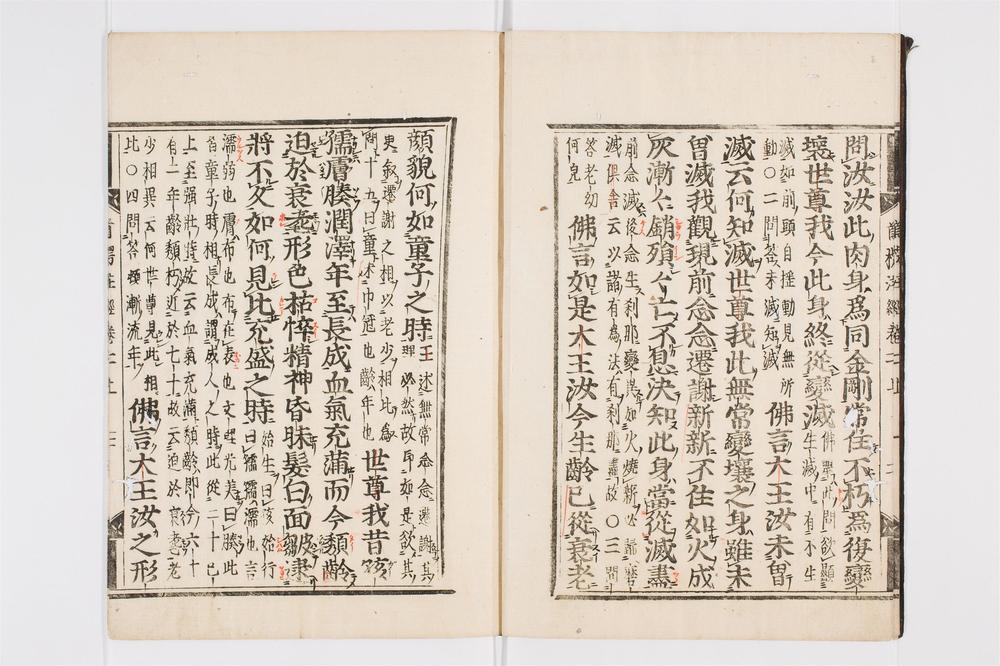 問汝汝此肉身為同金剛常住不朽為復變
壞世尊我今此身終從變滅
佛興此問欲顯
生滅中有不生
滅如前頭自搖動見無所
動〇二問答未滅知滅
佛言大王汝未曾
滅云何知滅世尊我此無常變壞之身雖未
曾滅我觀現前念念遷謝新新不住如火成
灰漸々銷殞々亡不息決知此身當從滅盡
前念滅後念生刹那變異如火燒薪必歸
滅俱舍云以諸有為法有刹那盡故〇三問
答老幼
何皇
佛言如是大王汝今生齡已從衰老
顏貌何如童子之時
王述無常念念遷謝其
理必然故印如是欲其
更敘遷謝之相以老少相比為
問十九曰童述巾冠也齡年也
世尊我昔孩
孺膚腠潤澤年至長成血氣充滿而今頹齡
迫於衰耄形色枯悴精神昏昧髮白面皺逮
將不久如何見比充盛之時
始生曰孩始行
曰孺孺濡也言
濡弱也膚布也布在表也文理光美曰腠此
皆童子時相長成謂成人之時此從二十已
上至強壯時故云血氣充滿頹齡即今六十
有二年齡頹朽近於七十故云迫於衰耄老
少相異云何世尊見此相
比〇四問答頓漸流年
佛言大王汝之形